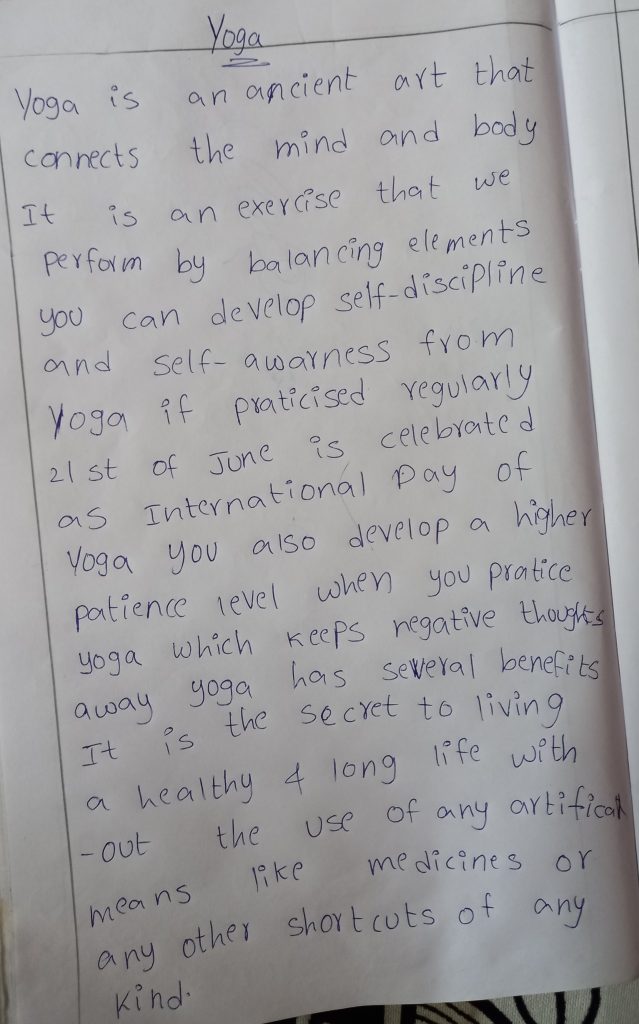 Yoga
Yoga is an ancient art that
connects the mind and body
It is an exercise that we
perform by balancing elements
you can develop self-discipline
and self-awarness from
Yoga if praticised regularly
21 st of June is celebrated
as International Day of
Yoga you also develop a higher
patience level when you pratice
yoga which keeps negative thoughts
away yoga has several benefits
It is the secret to living
a healthy & long life with
-out the use of any artifical
means like medicines or
any other shortcuts of any
kind.